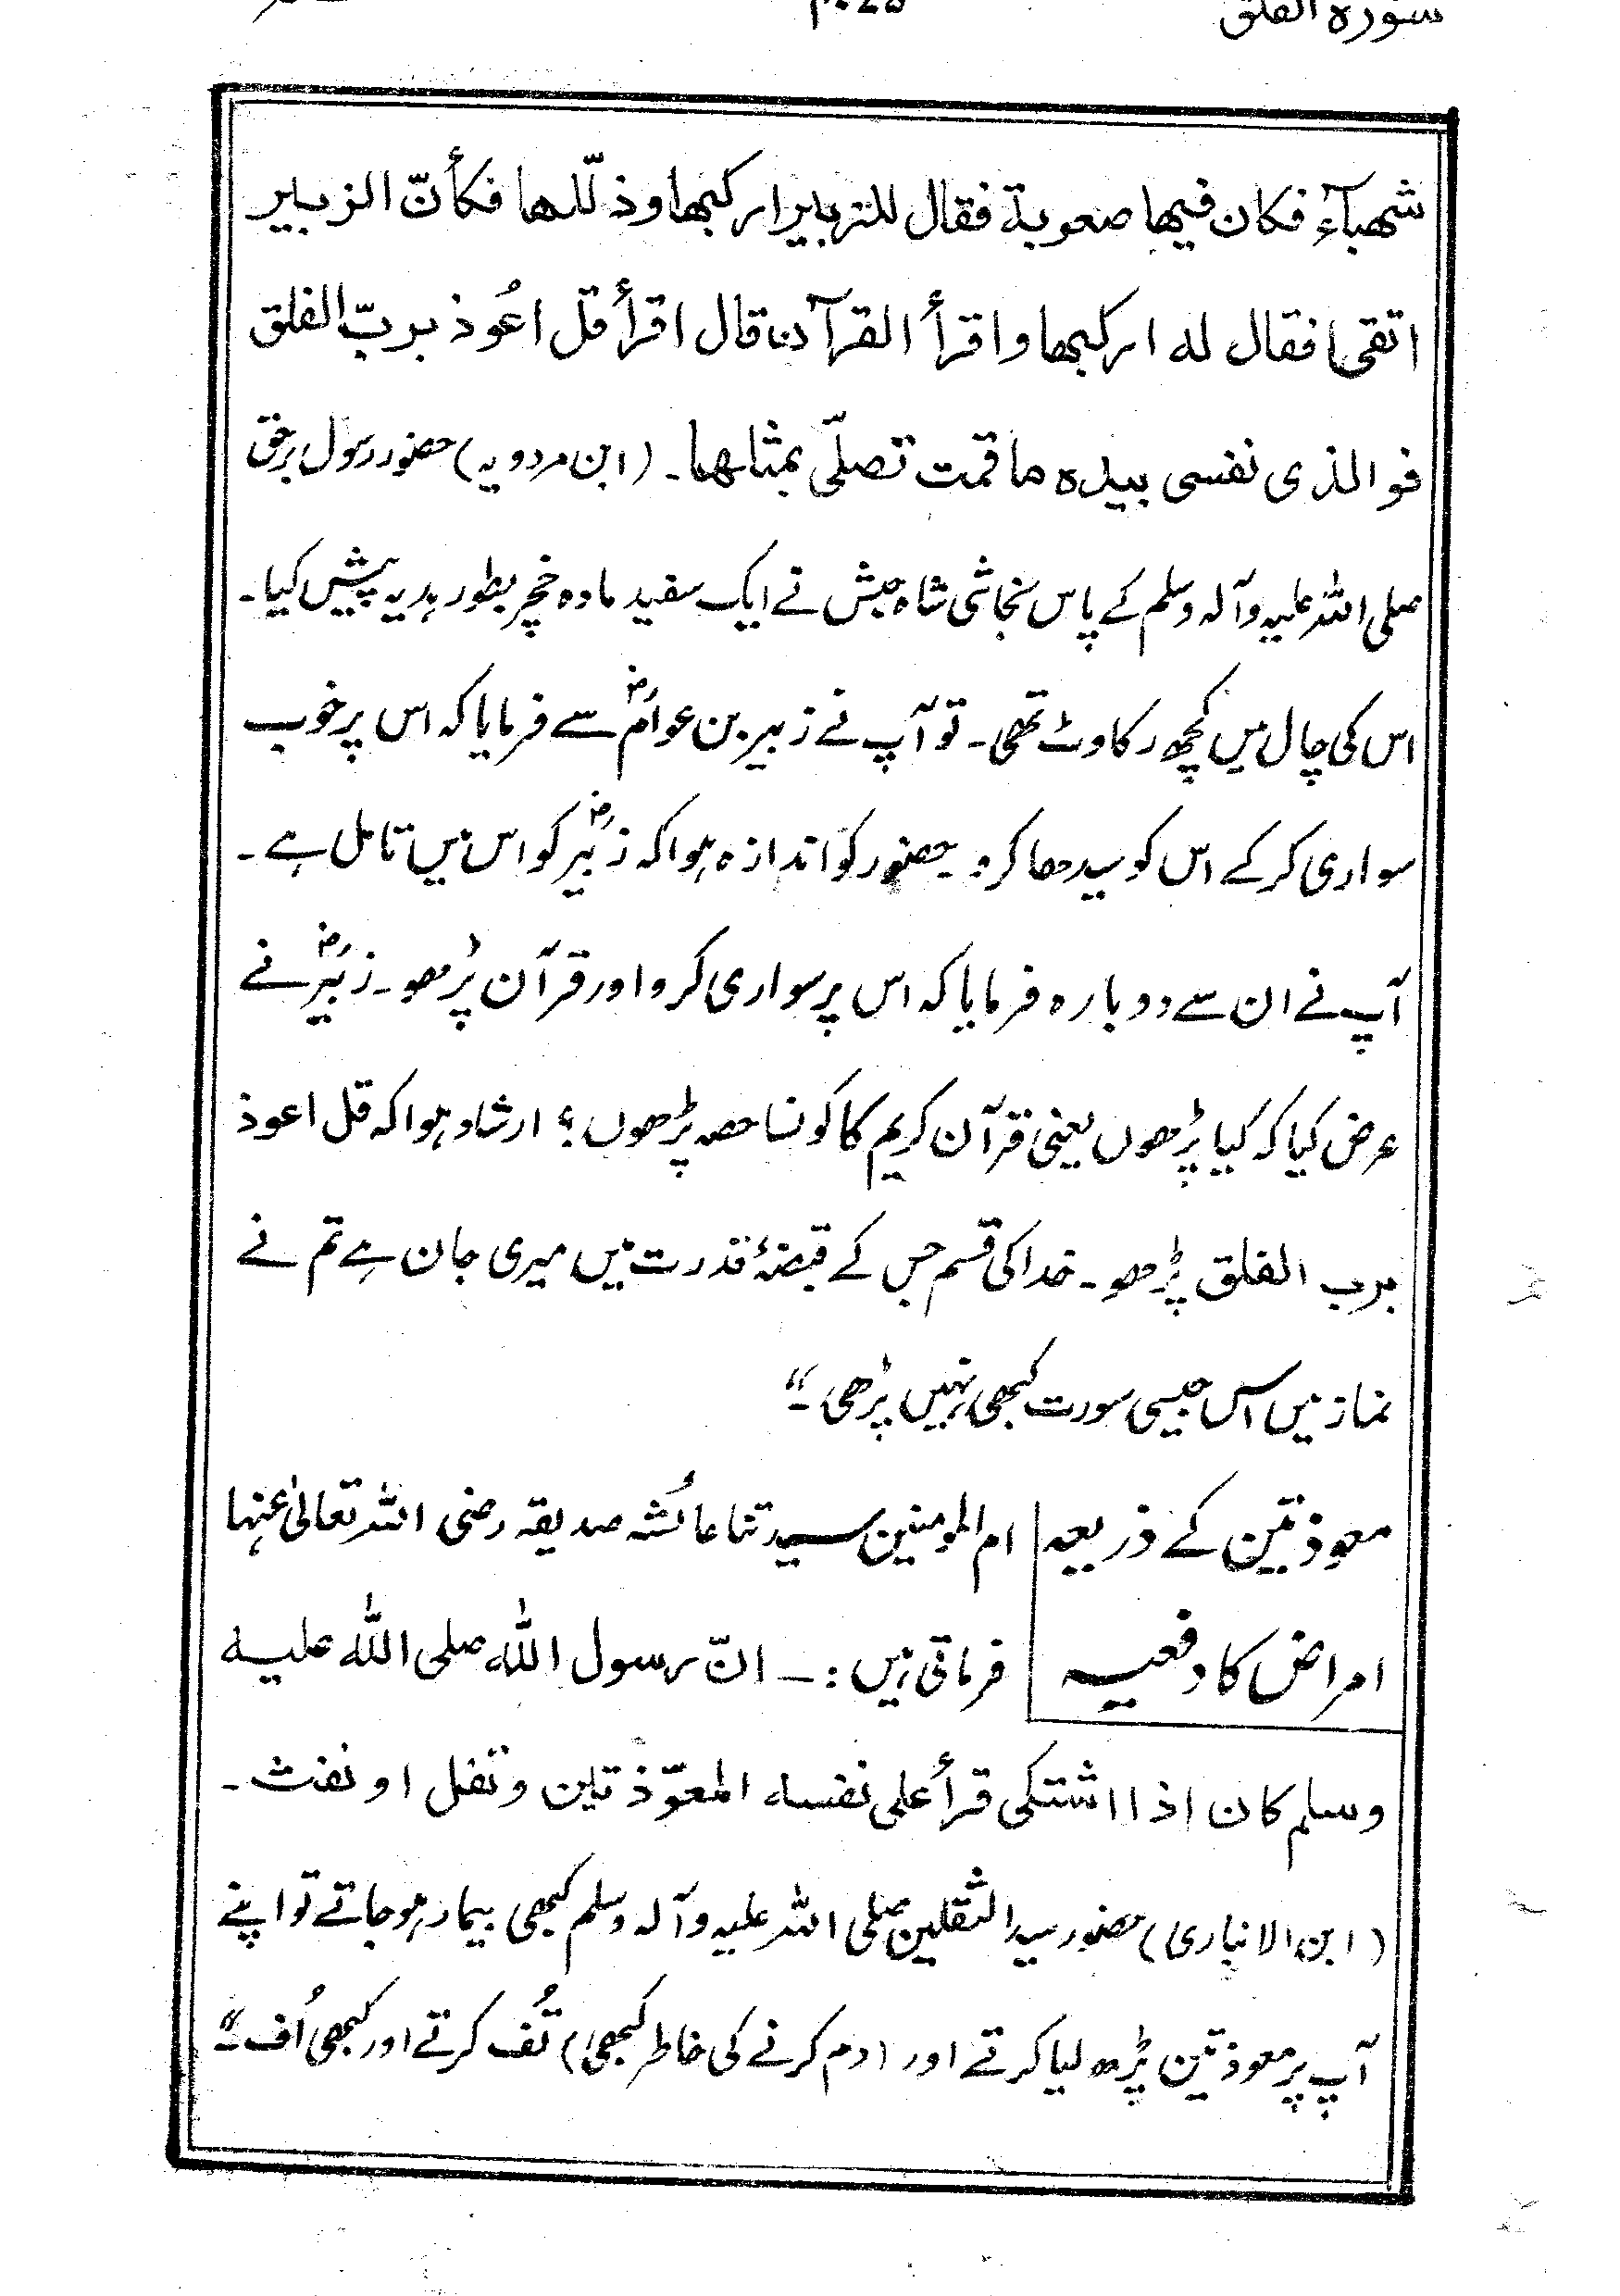 سورہ الفلق
شھبآء فکان فیھا صعوبة فقال للزبیر ارکبھا وذلّلھا فکأنّ الزبیر
اتقی فقال له ارکبھا واقرأ القرآن قال اقرأ قل اعُوذ بربّ الفلق
فوالذی نفسی بیده ما قمت تصلّی بمثلھا۔ (ابن مردویہ) حضور رسول برحق
صلی اللہ علیہ وآلہ وسلم کے پاس نجاشی شاہ حبش نے ایک سفید مادہ خچر بطور ہدیہ پیش کیا۔
اس کی چال میں کچھ رکاوٹ تھی۔ تو آپ نے زبیر بن عوامؓ سے فرمایا کہ اس پر خوب
سواری کر کے اس کو سیدھا کرو۔ حضور کو اندازہ ہوا کہ زبیرؓ کو اس میں تامل ہے۔
آپ نے ان سے دوبارہ فرمایا کہ اس پر سواری کرو اور قرآن پڑھو۔ زبیرؓ نے
عرض کیا کہ کیا پڑھوں یعنی قرآن کریم کا کونسا حصہ پڑھوں؟ ارشاد ہوا کہ قل اعوذ
برب الفلق پڑھو۔ خدا کی قسم جس کے قبضۂ قدرت میں میری جان ہے تم نے
نماز میں اس جیسی سورت کبھی نہیں پڑھی۔“
معوذتین کے ذریعہ ام المومنین سیدتنا عائشہ صدیقہ رضی اللہ تعالیٰ عنہا
امراض کا دفعیہ فرماتی ہیں :۔ انّ رسول اللّٰه صلی اللّٰه علیه
وسلم کان اذا اشتکی قرأ علی نفسه المعوّذتین وتفل او نفث۔
(ابن الانباری) حضور سید الثقلین صلی اللہ علیہ وآلہ وسلم کبھی بیمار ہو جاتے تو اپنے
آپ پر معوذتین پڑھ لیا کرتے اور (دم کرنے کی خاطر کبھی) تُف کرتے اور کبھی اُف۔“